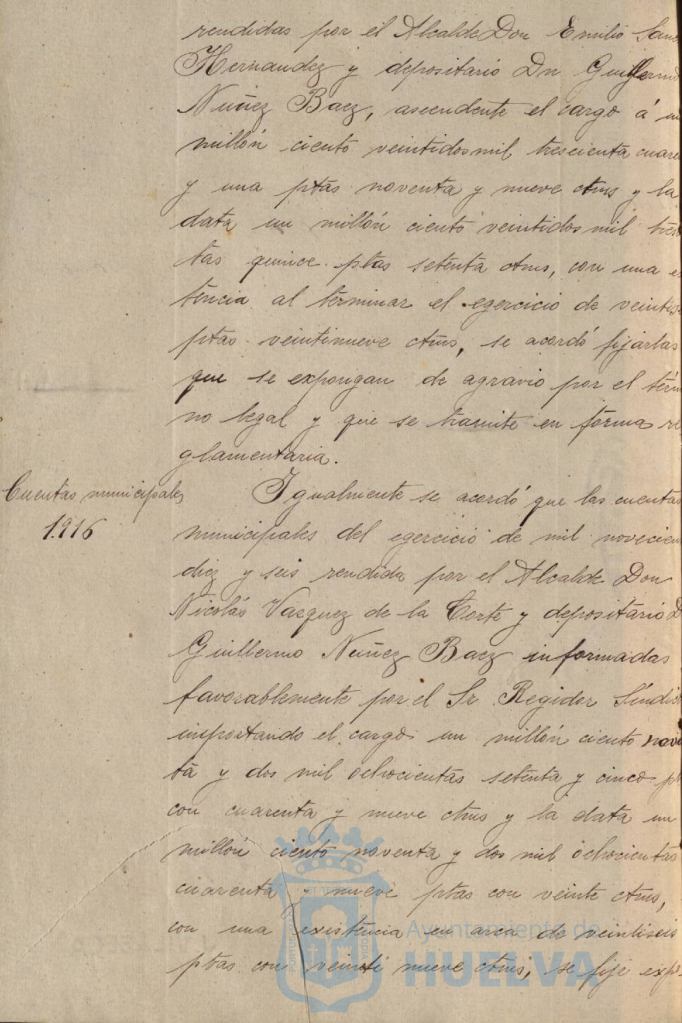 rendidas por el Alcalde Don Emilio
Hernandez y depositario Dn Guillermo
Nuñez Baez, ascendente el cargo á un
millón ciento veintidos mil trescienta cuaren
y una ptas noventa y nueve ctms y la
data un millón ciento veintidos mil tres
tas quince ptas setenta ctms, con una e
tencia al terminar el egercicio de veintis
ptas veintinueve ctms, se acordó fijarlas
que se expongan de agravio por el térm
no legal y que se tramite en forma re
glamentaria.
Cuentas municipales
1.916
Igualmente se acordó que las cuentas
municipales del egercicio de mil novecien
diez y seis rendida por el Alcalde Don
Nicolás Vazquez de la Corte y depositario D
Guillermo Nuñez Baez informadas
favorablemente por el Sr Regidor Síndi
importando el cargo un millón ciento nove
ta y dos mil ochocientas setenta y cinco pt
con cuarenta y nueve ctms y la data un
millón ciento noventa y dos mil ochocientas
cuarenta y nueve ptas con veinte ctms,
con una existencia en arca de veintiseis
ptas con veinti nueve ctms, se fije expo-
Ayuntamiento de
HUELVA